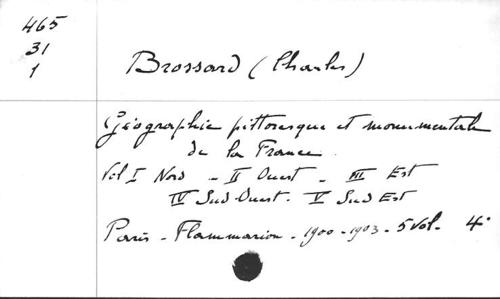 465
31
1
Brossard (Charles)
Géographie pittoresque et monumentale
de la France
Vol I Nord - II Ouest - III Est
IV Sud-Ouest. V Sud Est
Paris - Flammarion - 1900-1903 - 5 Vol. 4°